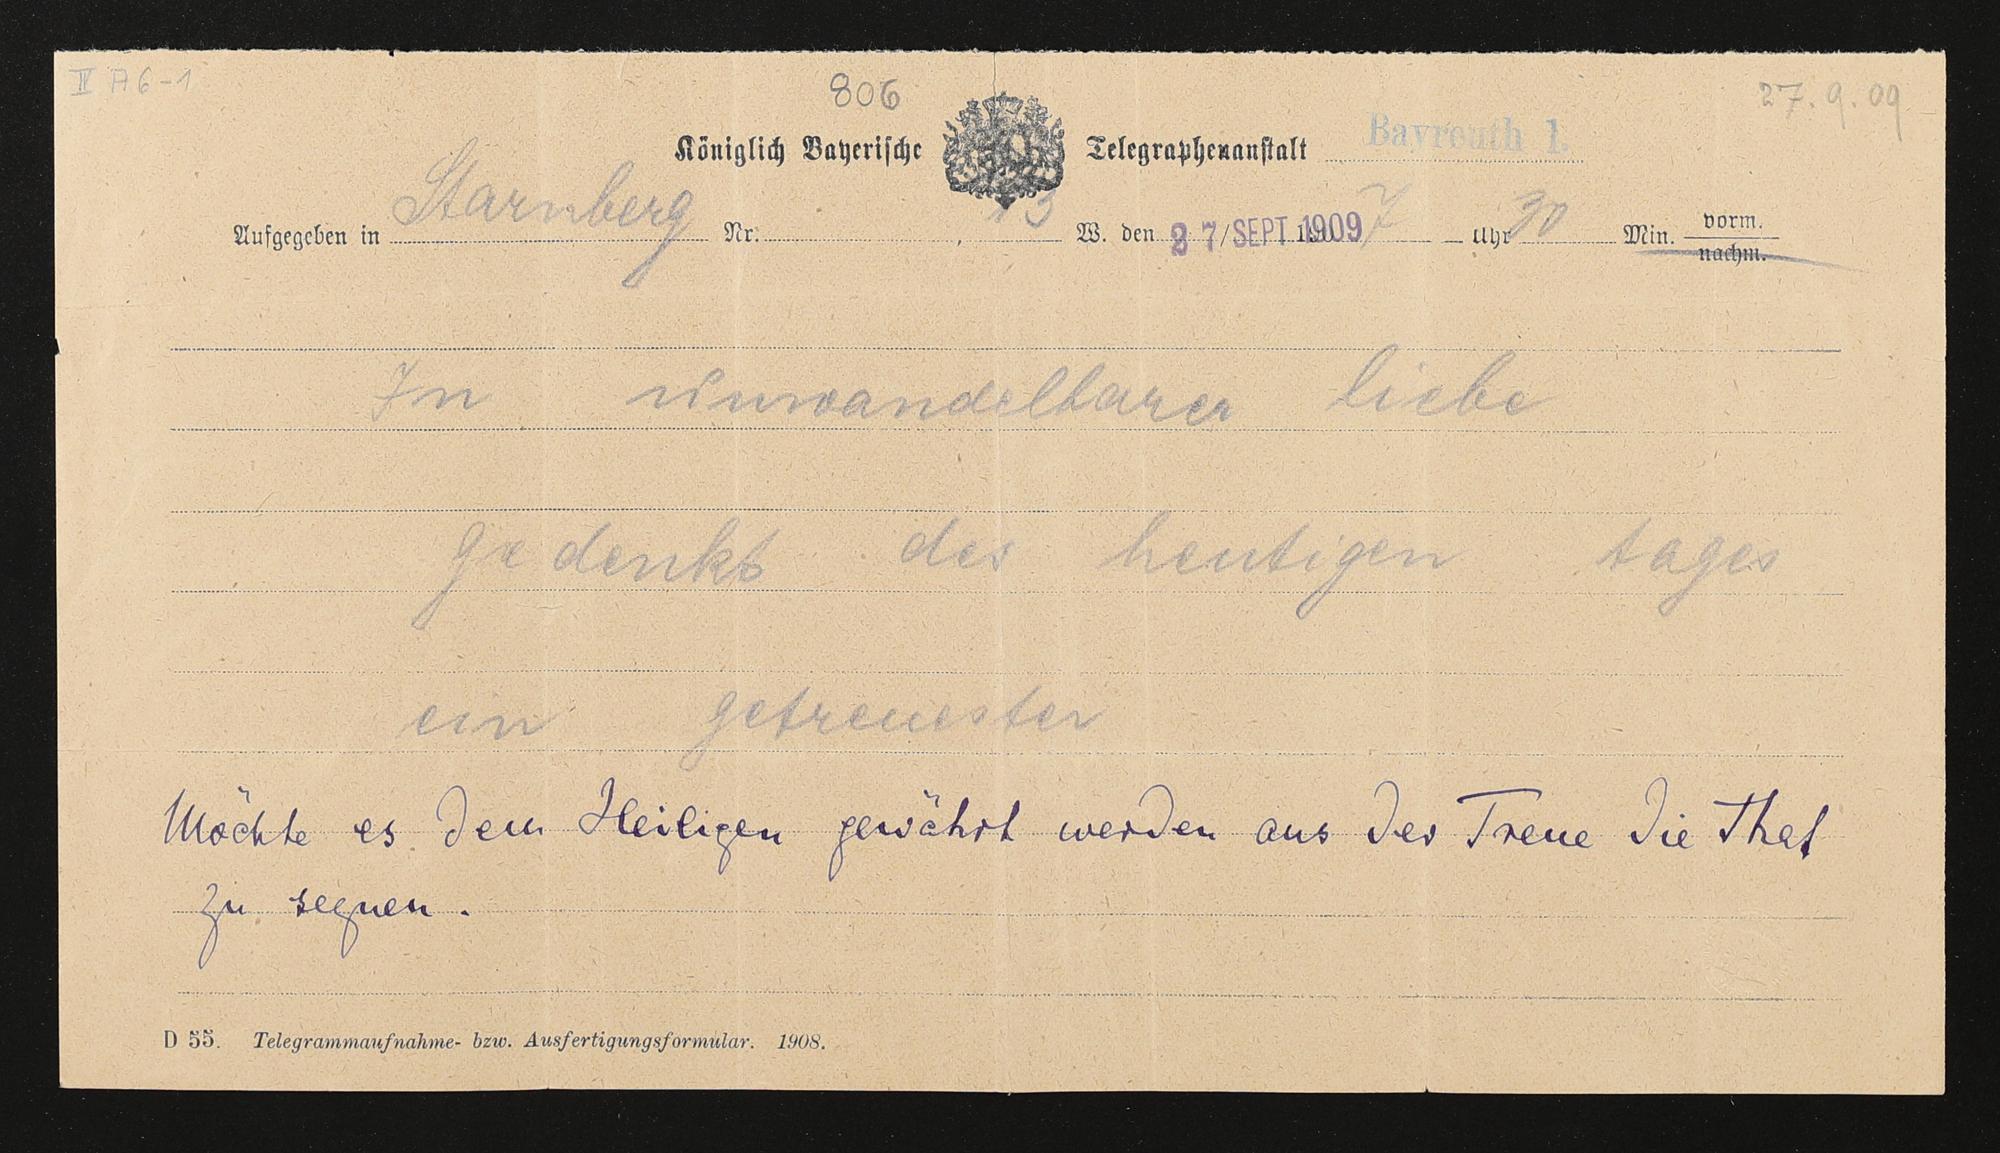 II A 6-1 806 27.9.09
Königlich Bayerische Telegraphenanstalt Bayreuth 1.
Aufgegeben in Starnberg Nr. 13 W. den 27/SEPT 1909 7 Uhr 30 Min. vorm.
nachm.
In unwandelbarer liebe
gedenkt des heutigen tages
ein getreuester
Möchte es dem Heiligen gewährt werden aus der Treue die That
zu segnen.
D 55. Telegrammaufnahme- bzw. Ausfertigungsformular. 1908.